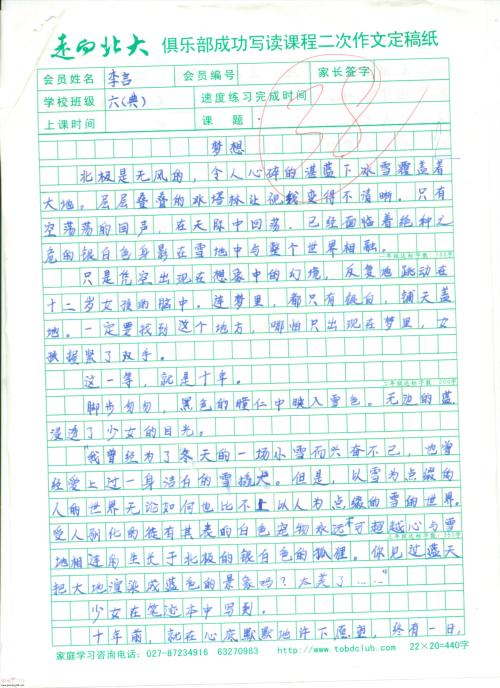 走向北大 俱乐部成功写读课程二次作文定稿纸
会员姓名 李言 会员编号 家长签字
学校班级 六(典) 速度练习完成时间
上课时间 课题
38
梦想
北极是无风的,令人心碎的湛蓝下冰雪覆盖着
大地。层层叠叠的水塔林让视线变得不清晰。只有
空荡荡的回声,在天际中回荡。已经面临着绝种之
危的银白色身影在雪地中与整个世界相融。
一年级达标字数 100字
只是凭空出现在想象中的幻境,反复地跳动在
十二岁女孩的脑中。连梦里,都只有银白,铺天盖
地。一定要找到这个地方,哪怕只出现在梦里,女
孩握紧了双手。
这一等,就是十年。
二年级达标字数 200字
脚步匆匆,黑色的瞳仁中映入雪色。无边的蓝
浸透了少女的目光。
“我曾经为了冬天的一场小雪而兴奋不已,也曾
经爱上过一身洁白的雪橇犬。但是,以雪为点缀的
人的世界无论如何也比不上以人为点缀的雪的世界。
受人别化的徒有其表的白色宠物永远不可超越心与雪
三年级达标字数 350字
地相连角生长于北极的银白色的狐狸。你见过蓝天
把大地渲染成蓝色的景象吗?太美了……”
少女在笔迹本中写到。
十年前,就在心底默默地许下愿望,终有一日,
家庭学习咨询电话:027-87234916 63270983 http://www.tobdclub.com 22×20=440字